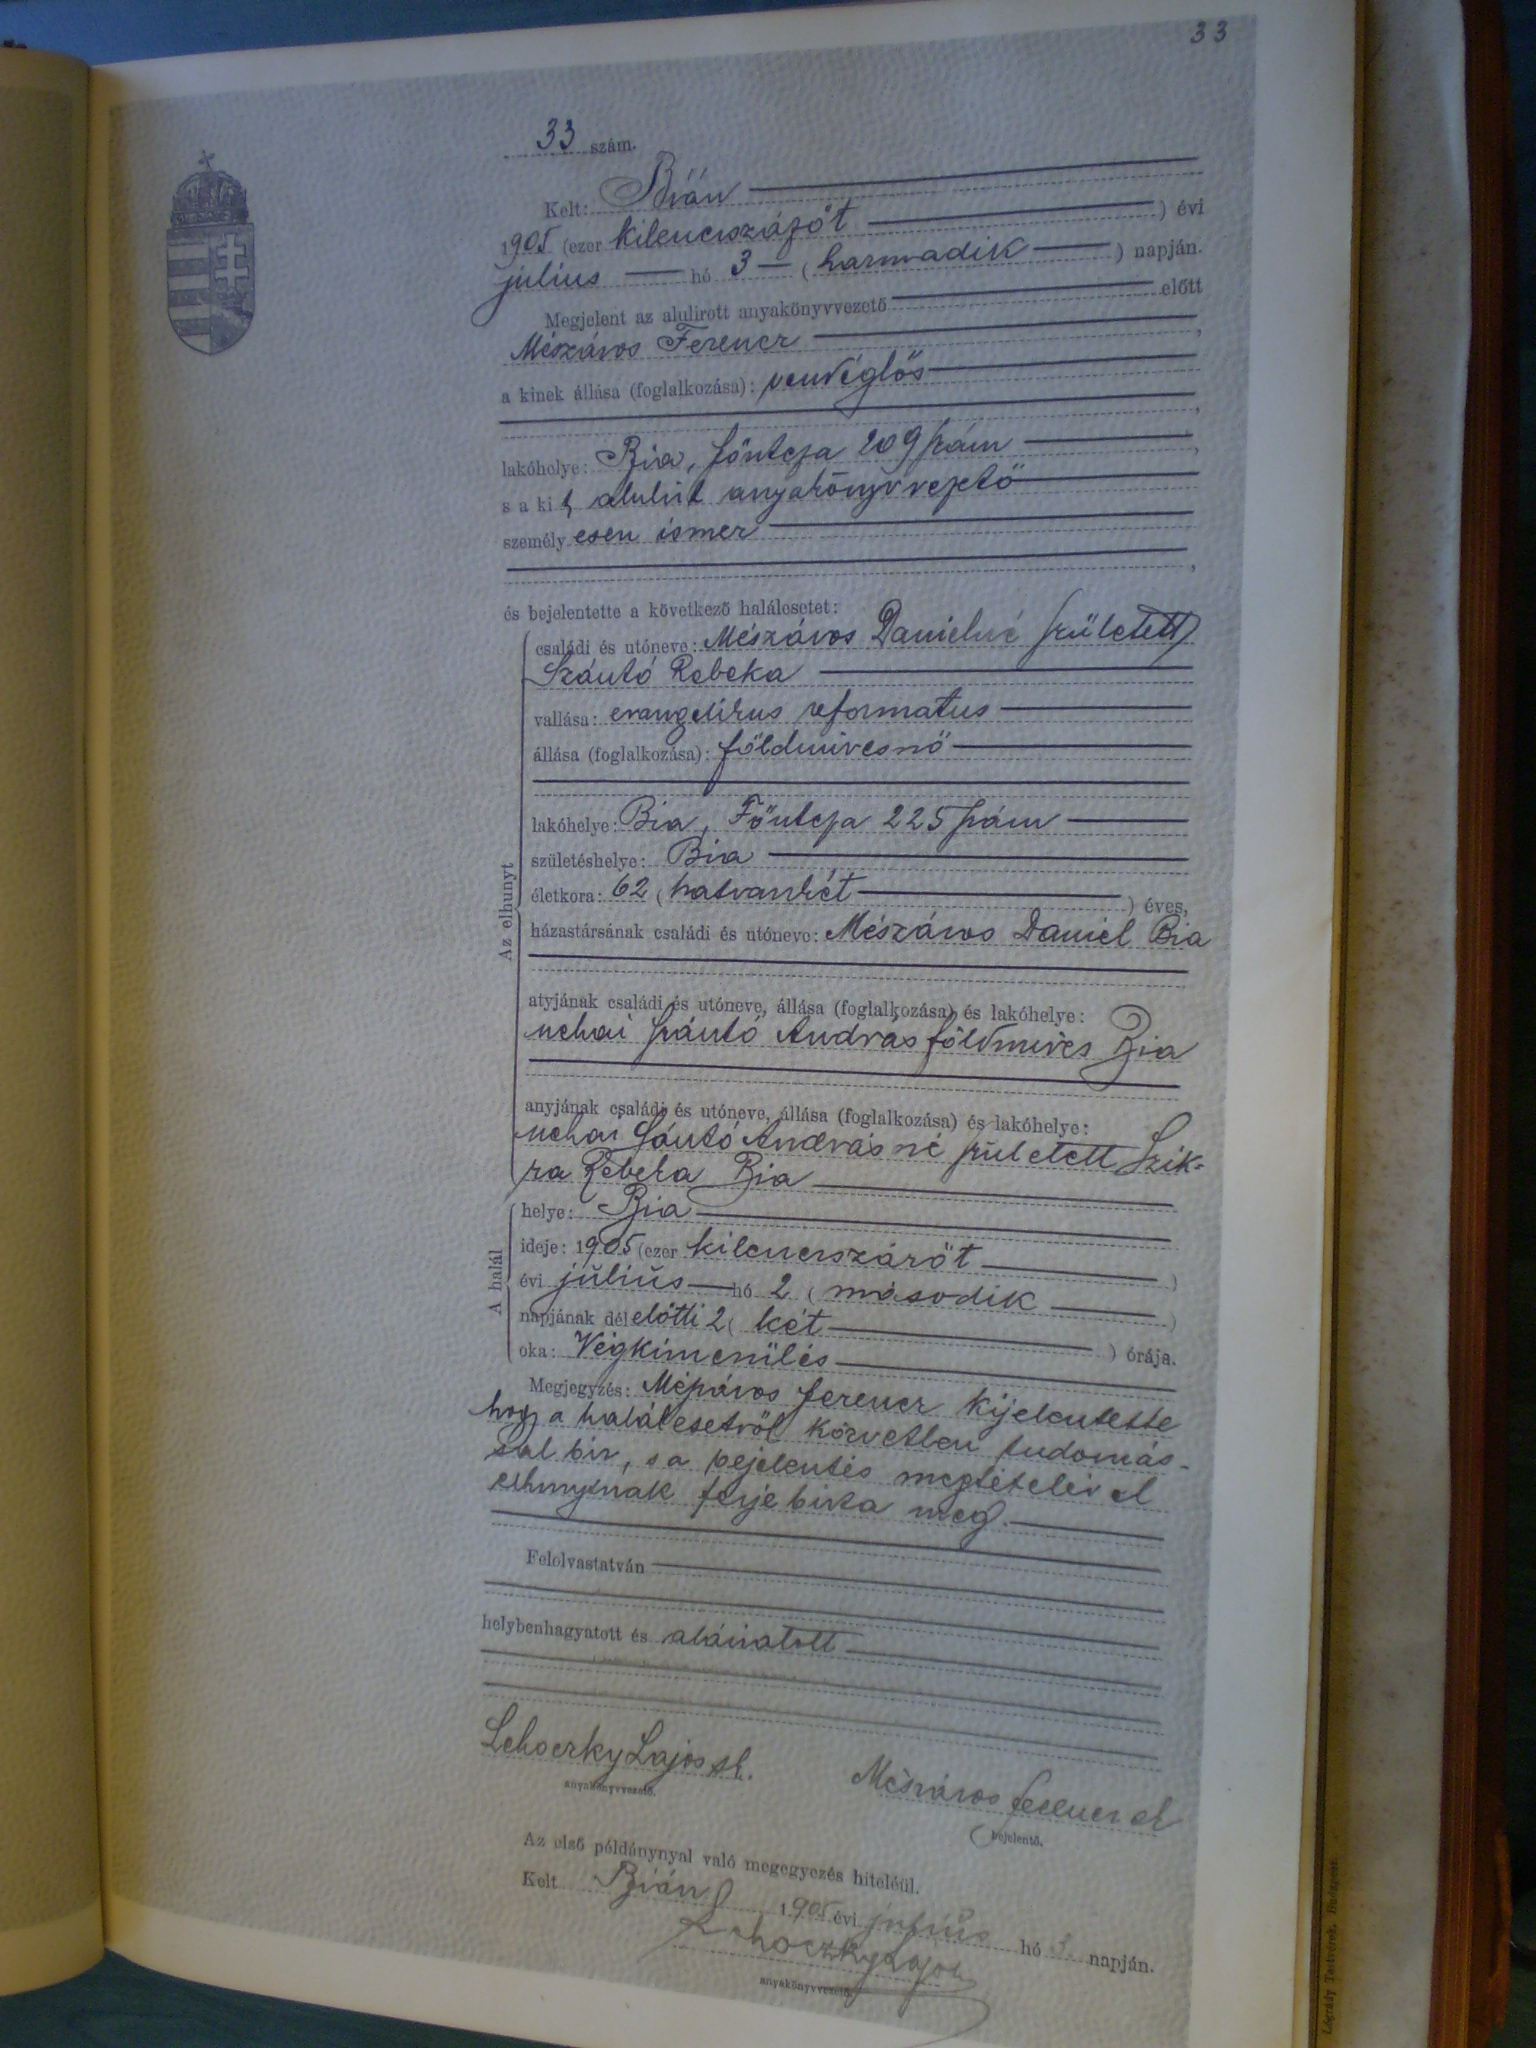 33
33 szám.
Kelt: Bián
1905 (ezer kilenczszázöt ) évi
július hó 3 ( harmadik ) napján.
Megjelent az alulirott anyakönyvvezető előtt
Mészáros Ferencz ,
a kinek állása (foglalkozása): vendéglős
,
lakóhelye: Bia, főutcza 209 szám ,
s a kit alulirt anyakönyvvezető
személyesen ismer
,
és bejelentette a következő halálesetet:
Az elhunyt
családi és utóneve: Mészáros Danielné született
Szántó Rebeka
vallása: evangelikus reformatus
állása (foglalkozása): földmivesnő
lakóhelye: Bia, Főutcza 225 szám
születéshelye: Bia
életkora: 62 ( hatvankét ) éves,
házastársának családi és utóneve: Mészáros Daniel Bia
atyjának családi és utóneve, állása (foglalkozása) és lakóhelye:
nehai Szántó András földmives Bia
anyjának családi és utóneve, állása (foglalkozása) és lakóhelye:
nehai Szántó Andrásné született Szik=
ra Rebeka Bia
A halál
helye: Bia
ideje: 1905 (ezer kilenczszázöt )
évi július hó 2 ( második )
napjának délelőtti 2 ( két ) órája.
oka: Végkimerülés
Megjegyzés: Mészáros Ferencz kijelentette
hogy a halálesetről közvetlen tudomás-
sal bir, s a bejelentés megtételével
elhunytnak férje bizta meg.
Felolvastatván
helybenhagyatott és aláiratott
Lehoczky Lajos sk. Mészáros Ferencz sk
anyakönyvvezető. bejelentő.
Az első példánynyal való megegyezés hiteléül.
Kelt Bián 1905 évi július hó 3. napján.
Lehoczky Lajos
anyakönyvvezető.
Légrády Testvérek, Budapest.